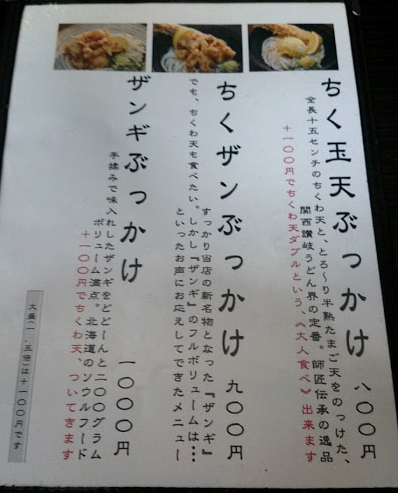 ちく玉天ぶっかけ 八〇〇円
全長十五センチのちくわ天と、とろ～り半熟たまご天をのっけた、
関西讃岐うどん界の定番。師匠伝承の逸品
＋一〇〇円でちくわ天ダブルという、《大人食べ》出来ます
ちくザンぶっかけ 九〇〇円
すっかり当店の新名物となった『ザンギ』
でも、ちくわ天も食べたい。しかし『ザンギ』のフルボリュームは…
といったお声にお応えしてできたメニュー
ザンギぶっかけ 一〇〇〇円
手揉みで味入れしたザンギをどどーんと二〇〇グラム
ボリューム満点。北海道のソウルフード
＋一〇〇円でちくわ天、ついてきます
大盛(一.五倍)は＋一〇〇円です